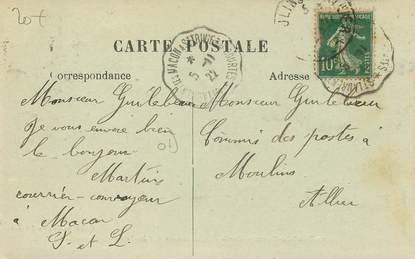 20+
CARTE POSTALE
Correspondance
Adresse
5 -11
22
10c
Monsieur
Je vous envoie bien
le bonjour
Martin
courrier-convoyeur
à Macon
S. et L.
01
Monsieur
Commis des postes à
Moulins
Allier